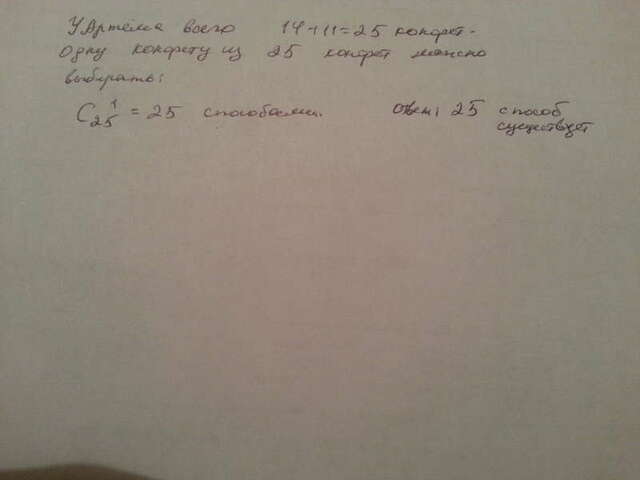 У Артёма всего 14+11=25 конфет.
Одну конфету из 25 конфет можно
выбирать:
C₂₅¹ = 25 способами. Ответ: 25 способ
существует